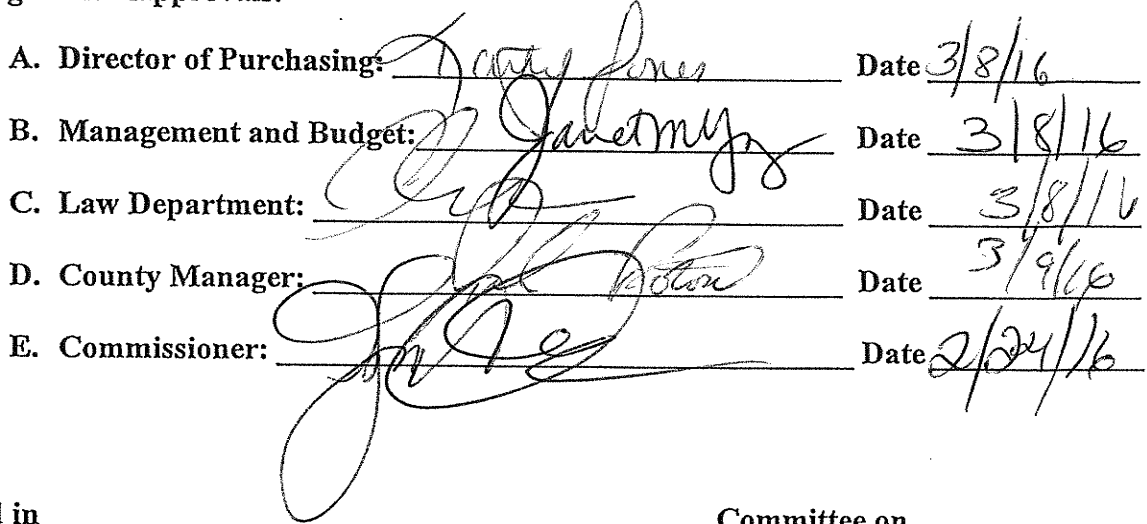 A. Director of Purchasing: Jones Date 3/8/16
B. Management and Budget: Janet Date 3/8/16
C. Law Department: Date 3/8/16
D. County Manager: Date 3/9/16
E. Commissioner: Date 2/24/16
in Committee on